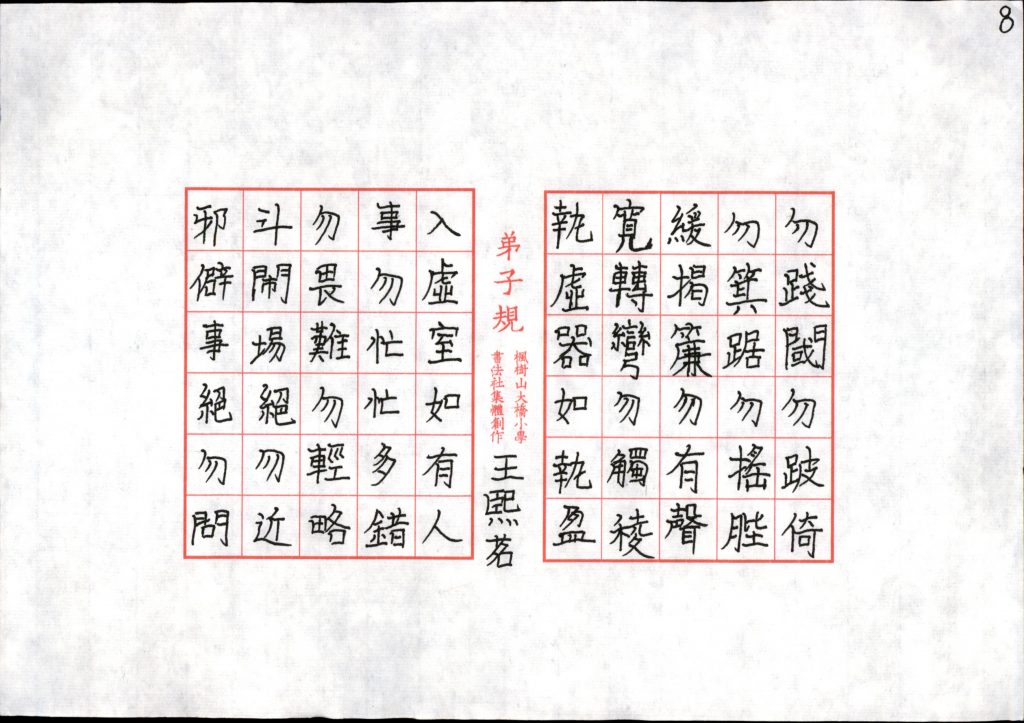 8
勿踐閾勿跛倚
勿箕踞勿搖髀
緩揭簾勿有聲
寬轉彎勿觸稜
執虛器如執盈
弟子規
楓樹山大橋小學
書法社集體創作
王熙茗
入虛室如有人
事勿忙忙多錯
勿畏難勿輕略
斗鬧場絕勿近
邪僻事絕勿問